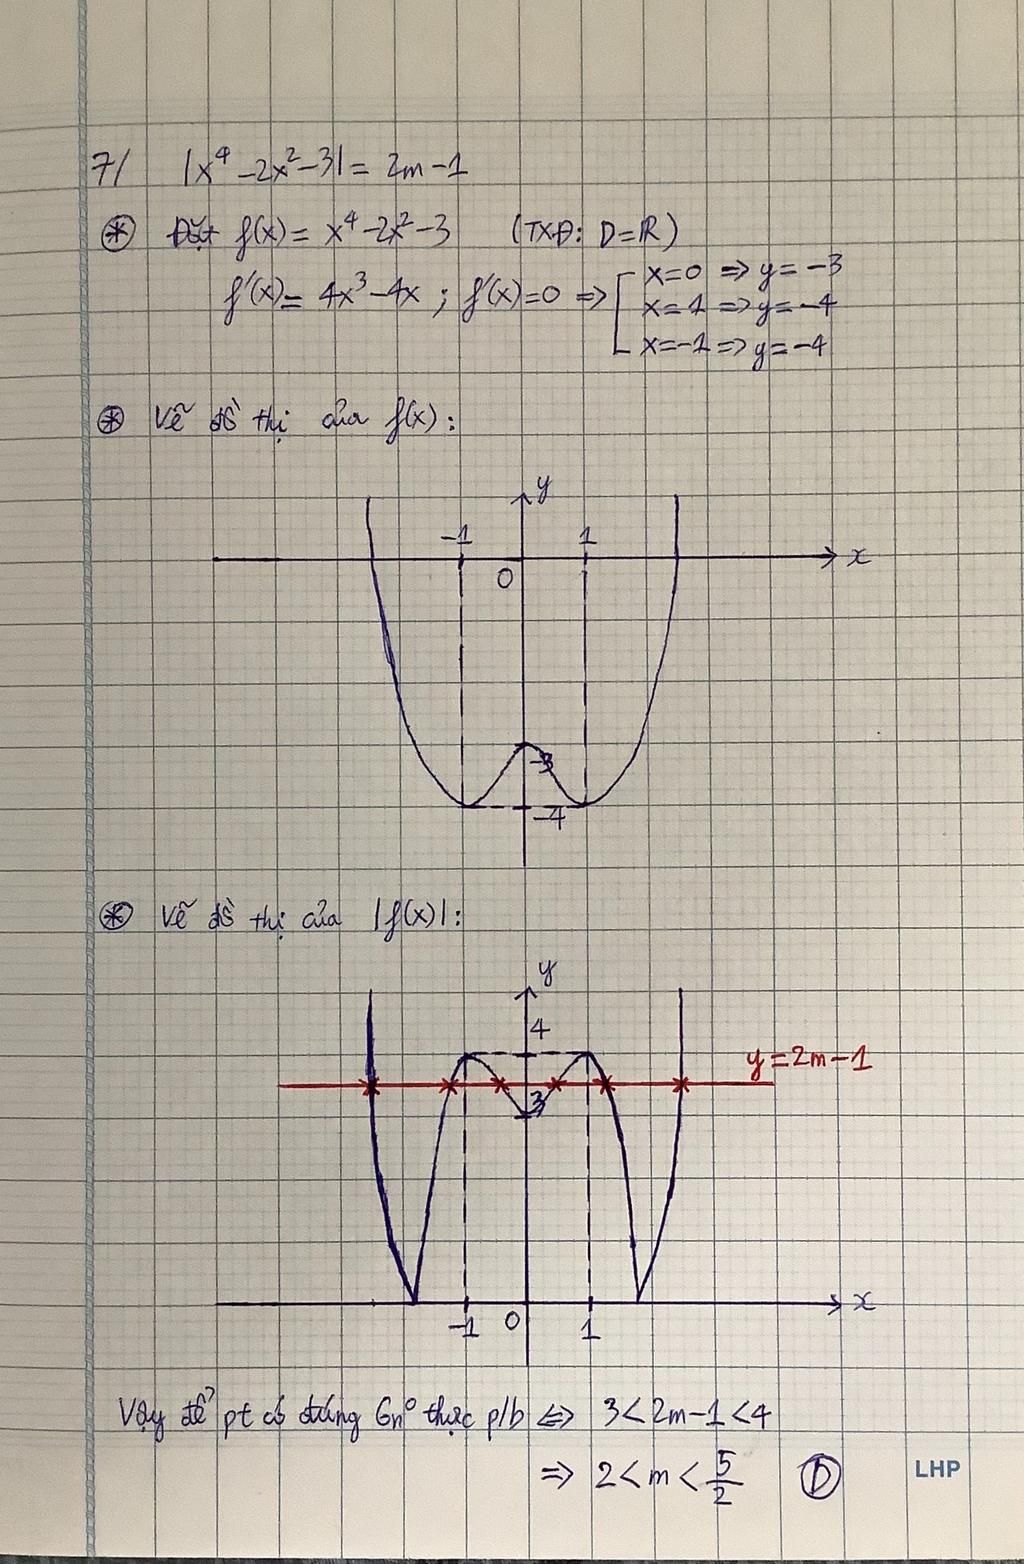 7/ |x⁴ -2x² -3| = 2m -1
⊛ Đặt f(x) = x⁴ -2x² -3 (TXĐ: D=ℝ)
f'(x) = 4x³ -4x ; f'(x)=0 => [ x=0 => y= -3
x=1 => y= -4
x=-1 => y= -4
⊛ Vẽ đồ thị của f(x):
y
-1 1
x
0
-3
-4
⊛ Vẽ đồ thị của |f(x)|:
y
4
y=2m-1
3
x
-1 0 1
Vậy để pt có đúng 6n⁰ thực p/b <=> 3<2m-1<4
=> 2<m<5/2 Ⓓ
LHP